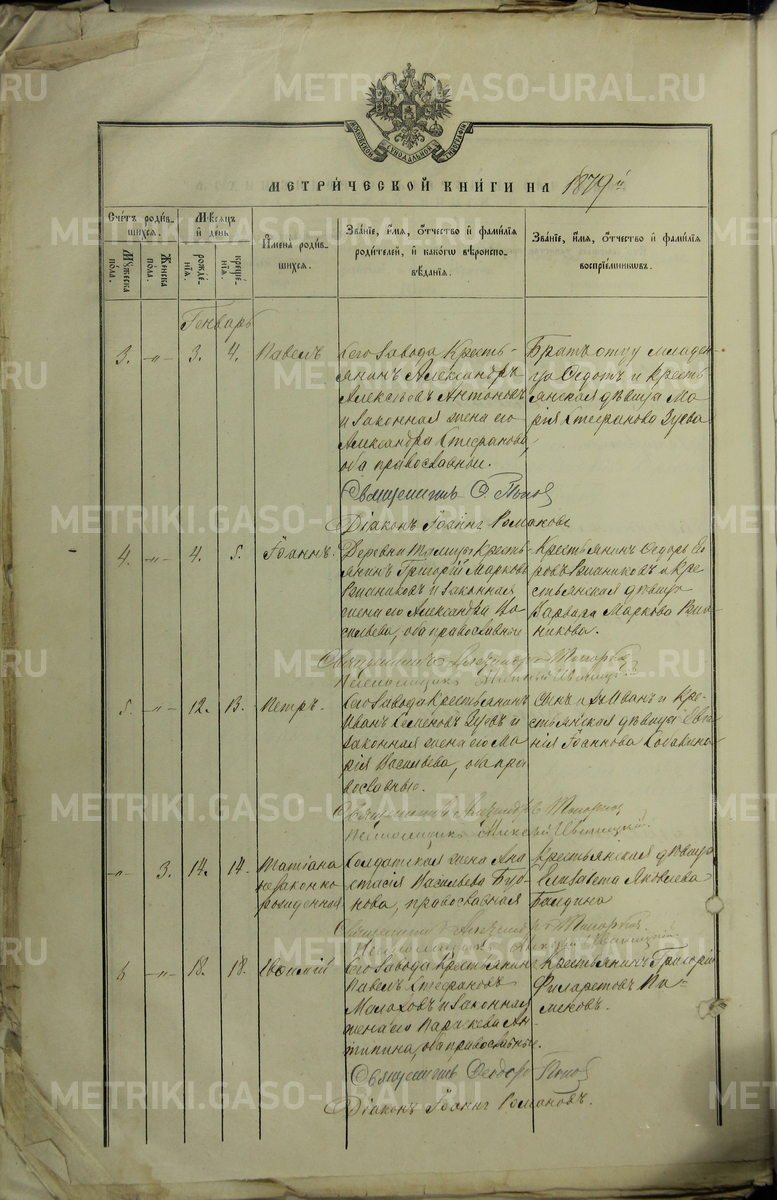 METRIKI.GASO-URAL.RU
МОСКОВСКОЙ СѴНОДАЛЬНОЙ ТИПОГРАФІИ
МЕТРИ́ЧЕСКОЙ КНИ́ГИ НА 1879й
Сче́тъ роди́в-
шихся.
Мꙋ́жеска по́ла.
Же́нска по́ла.
Мѣ́сяцъ
и҆ де́нь
рожде́-
нїѧ.
креще́-
нїѧ.
И҆мена̀ роди́в-
шихся.
Зва́нїе, и҆́мѧ, ѻ҆́тчество и҆ фами́лїѧ
роди́телей, и҆ како́гѡ вѣроиспо-
вѣ́данїѧ.
Зва́нїе, и҆́мѧ, ѻ҆́тчество и҆ фами́лїѧ
воспрїе́мниковъ.
Генварь
3. -„- 3. 4. Павелъ
Сего завода Кресть-
янинъ Александръ
Алексѣевъ Антоновъ
и законная жена его
Александра Стефанова,
оба православные.
Братъ отцу младен-
ца Федотъ и Кресть
янская дѣвица Ма
рія Стефанова Зуева
Священникъ Ѳ. Поповъ
Діаконъ Іоаннъ Романовъ
4. -„- 4. 5. Іоаннъ.
Деревни Талицы Кресть-
янинъ Григорій Марковъ
и законная
жена его Александра Ва
сильева, оба православные
Крестьянинъ Федоръ
и Кре
стьянская дѣвица
Варвара Маркова
Священникъ Александръ Топорковъ
Псаломщикъ
5. -„- 12. 13. Петръ.
Сего завода Крестьянинъ
Иванъ Семеновъ Зуевъ и
законная жена его Ма
рія Васильева, оба пра
вославные.
Иванъ и Кре-
стьянская дѣвица Евге
нія Іоаннова
Священникъ Александръ Топорковъ
Псаломщикъ
-„- 3. 14. 14. Татіана
незаконно
рожденная
Солдатская жена Ана
стасія Васильева
православная
Крестьянская дѣвица
Елизавета Яковлева
Балдина
Священникъ Александръ Топорковъ
Псаломщикъ
6 -„- 18. 18. Евфимій
Сего завода Крестьянинъ
Павелъ Стефановъ
Малаховъ и законная
жена его Параскева Ан-
типина, оба православные.
Крестьянинъ Григорій
Филаретовъ Па-
меновъ.
Священникъ Феодоръ Поповъ
Діаконъ Іоаннъ Романовъ.